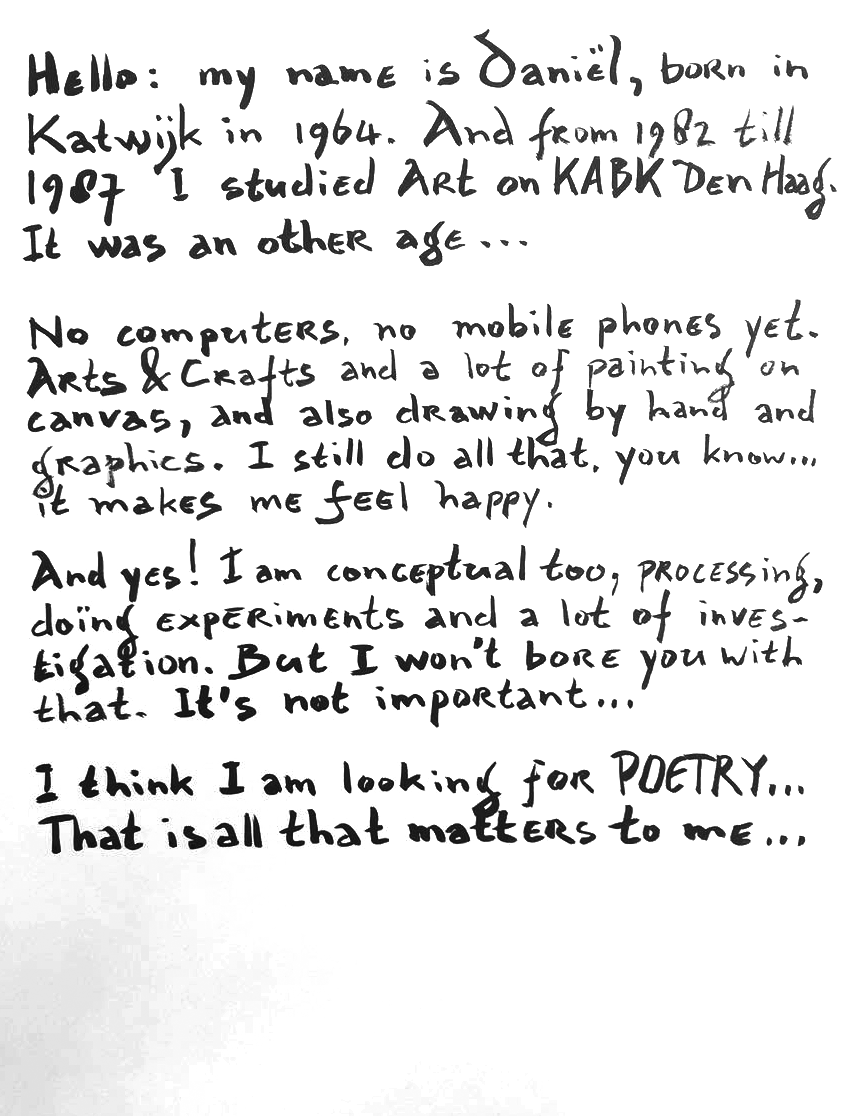 Hello: my name is Daniël, born in
Katwijk in 1964. And from 1982 till
1987 I studied Art on KABK Den Haag.
It was an other age...
No computers, no mobile phones yet.
Arts & Crafts and a lot of painting on
canvas, and also drawing by hand and
graphics. I still do all that, you know...
it makes me feel happy.
And yes! I am conceptual too, processing,
doïng experiments and a lot of inves-
tigation. But I won't bore you with
that. It's not important...
I think I am looking for POETRY...
That is all that matters to me...